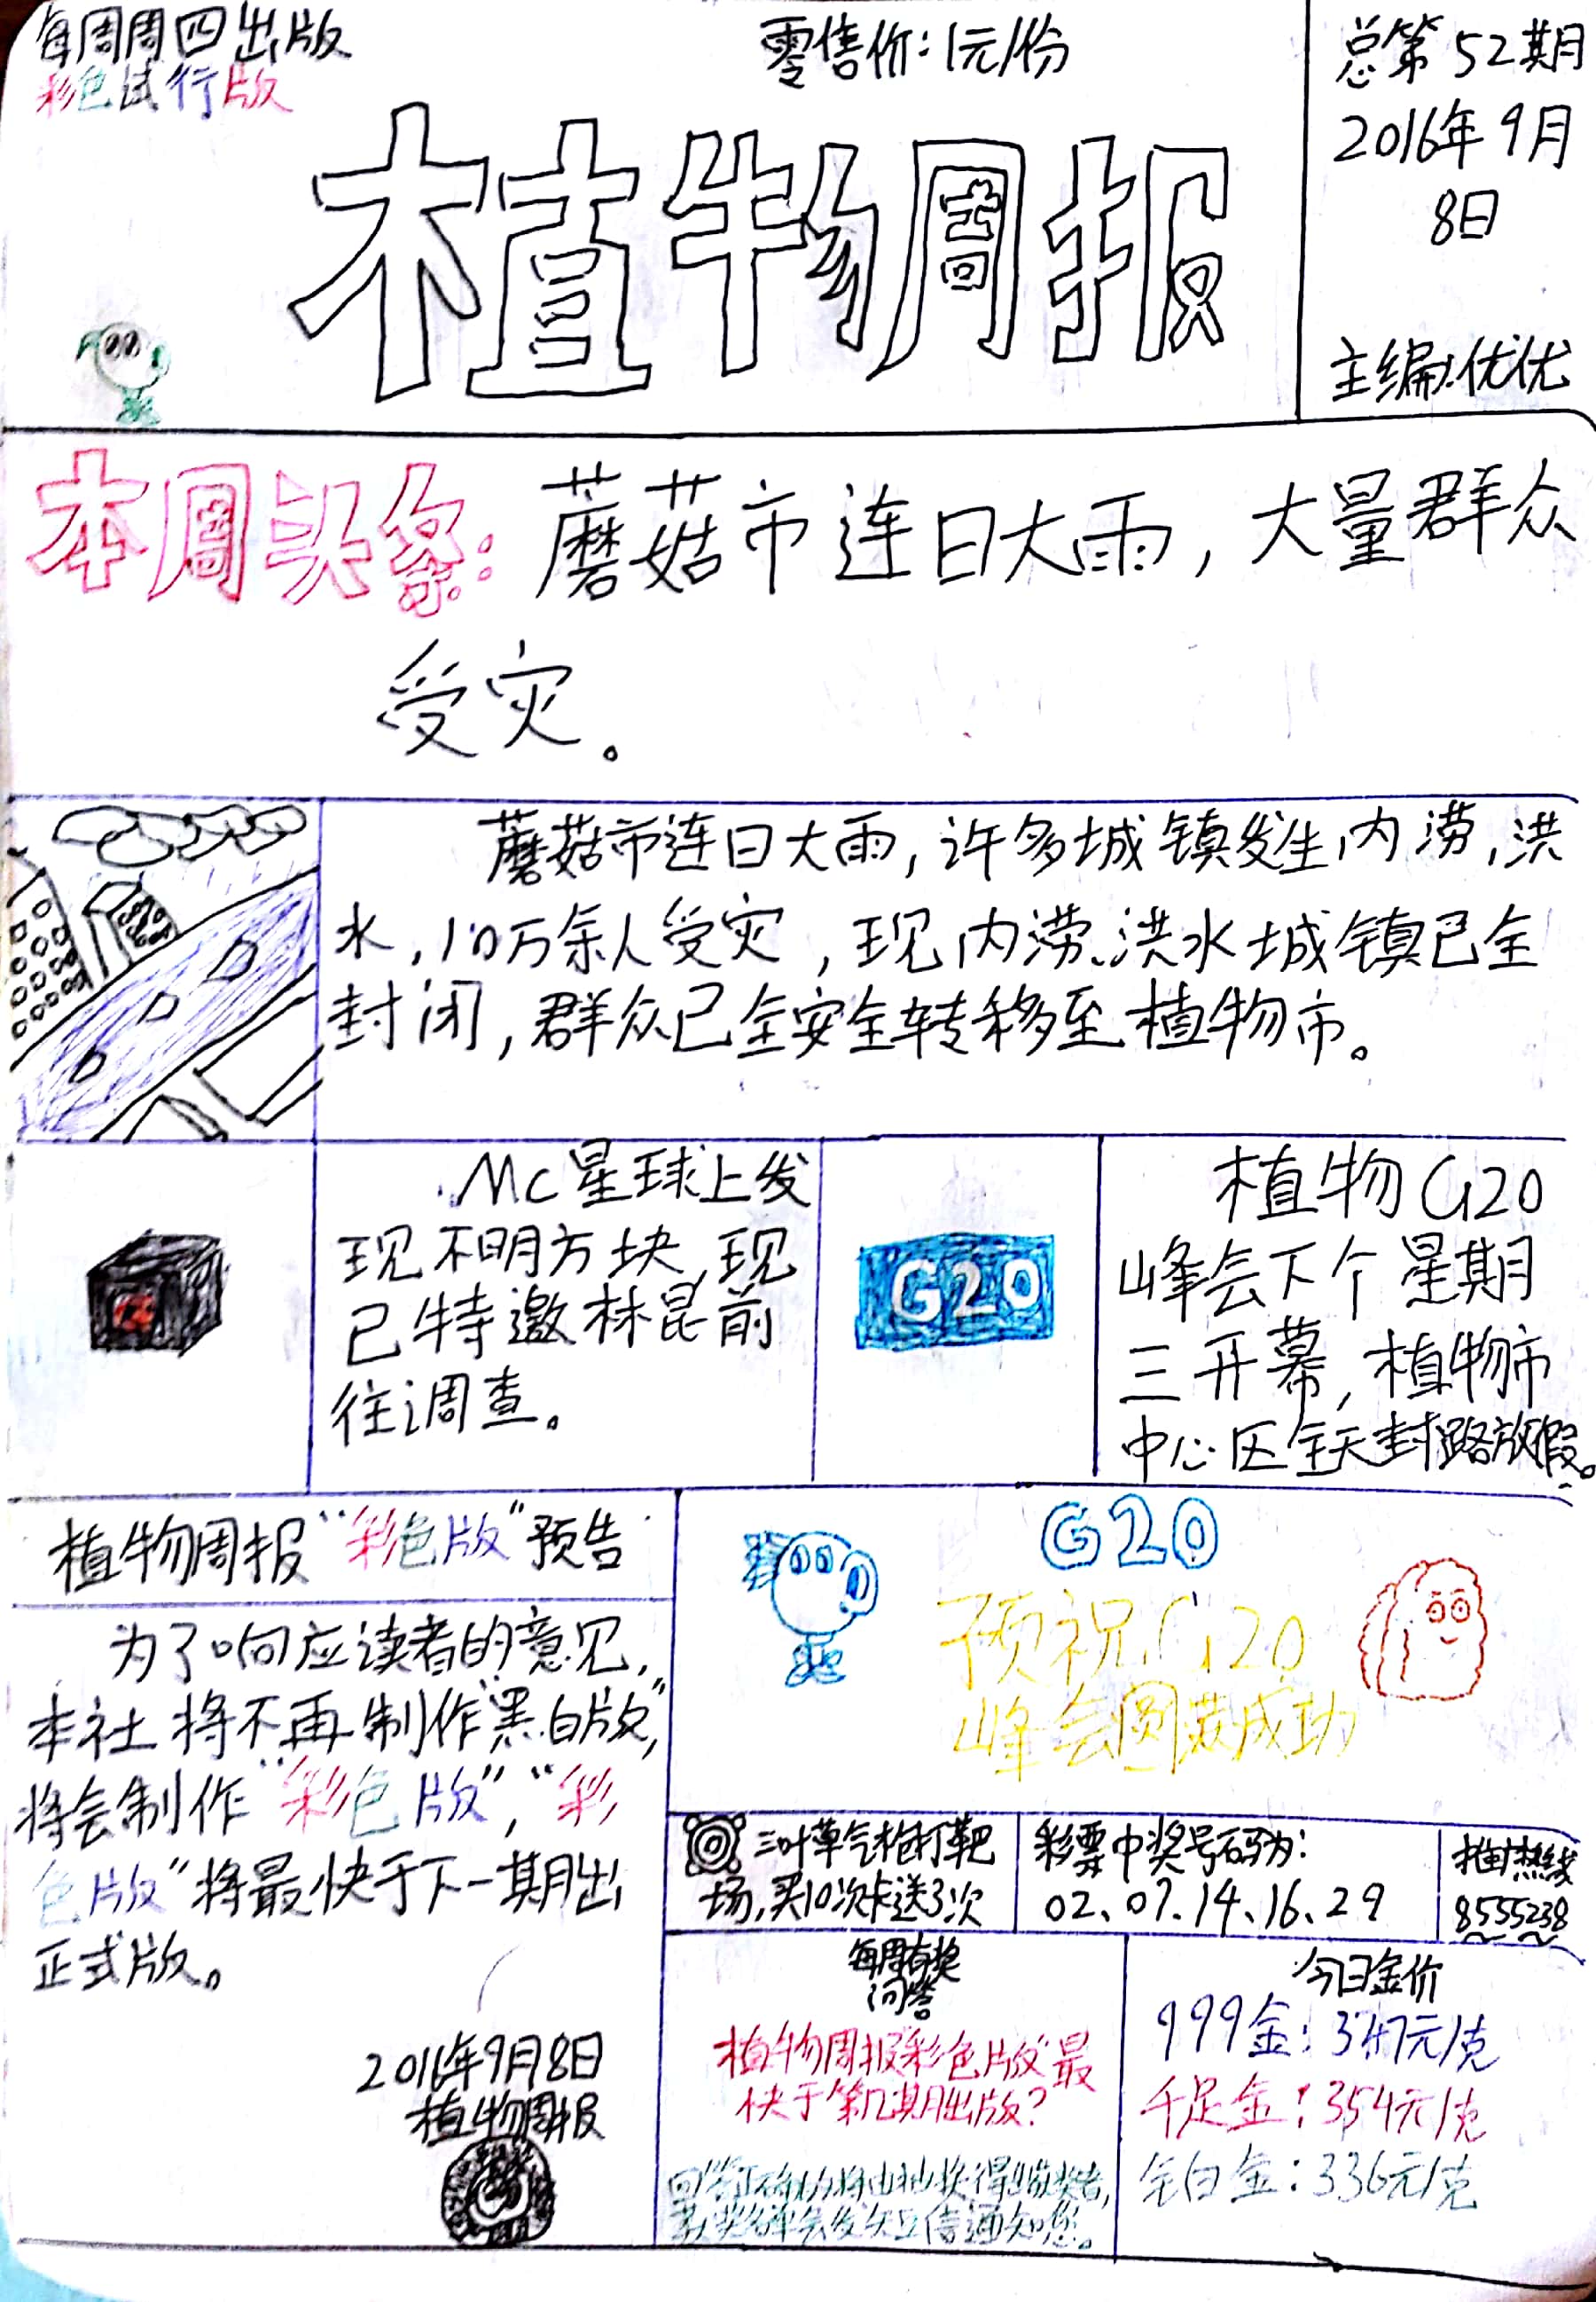 每周周四出版
彩色试行版
零售价:1元/份
总第52期
2016年9月
8日
主编:优优
植物周报
本周头条:蘑菇市连日大雨,大量群众
受灾。
蘑菇市连日大雨,许多城镇发生内涝,洪
水,10万余人受灾,现内涝、洪水城镇已全
封闭,群众已全安全转移至植物市。
MC星球上发
现不明方块,现
已特邀林昆前
往调查。
G20
植物G20
峰会下个星期
三开幕,植物市
中心区全天封路放假。
植物周报“彩色版”预告
为了响应读者的意见,
本社将不再制作“黑白版”,
将会制作“彩色版”,“彩
色版”将最快于下一期出
正式版。
2016年9月8日
植物周报
G20
预祝G20
峰会圆满成功
三叶草气枪打靶
场,买10次卡送3次
彩票中奖号码为:
02、07、14、16、29
热线
8555238
每周有奖
问答
植物周报“彩色版”最
快于第几期出版?
回答正确的将由抽奖得出获奖者,
获奖名单会发短信通知您。
今日金价
999金:347元/克
千足金:354元/克
铂白金:336元/克